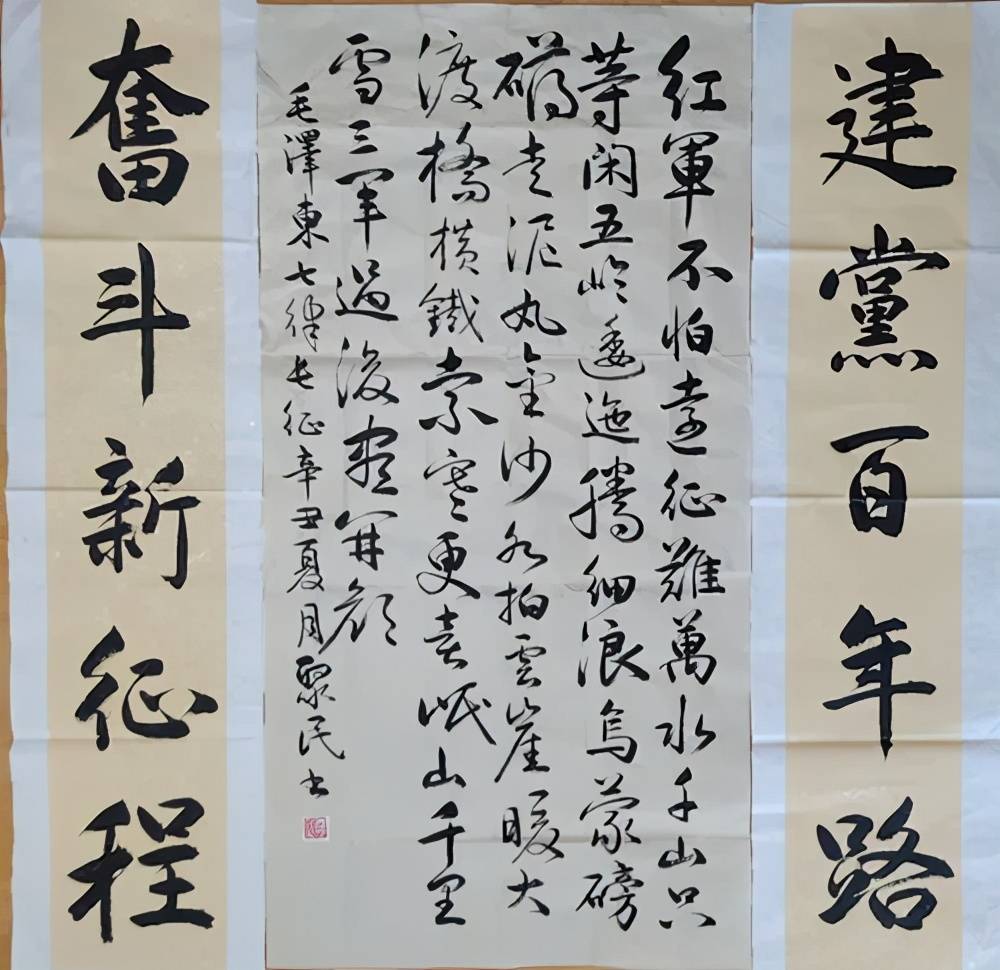 建黨百年路
紅軍不怕遠征難萬水千山只
等閑五岭逶迤騰細浪烏蒙磅
礴走泥丸金沙水拍雲崖暖大
渡橋横鐵索寒更喜岷山千里
雪三軍過後盡開顔
毛澤東七律長征辛丑夏月聚民书
奮斗新征程